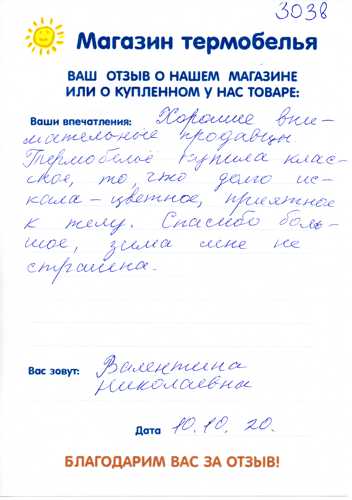 3038
Магазин термобелья
ВАШ ОТЗЫВ О НАШЕМ МАГАЗИНЕ
ИЛИ О КУПЛЕННОМ У НАС ТОВАРЕ:
Ваши впечатления: Хорошие вни-
мательные продавцы.
Термобельё купила клас-
сное, то, что долго ис-
кала - цветное, приятное
к телу. Спасибо боль-
шое, зима мне не
страшна.
Вас зовут: Валентина
Николаевна
Дата 10.10.20.
БЛАГОДАРИМ ВАС ЗА ОТЗЫВ!